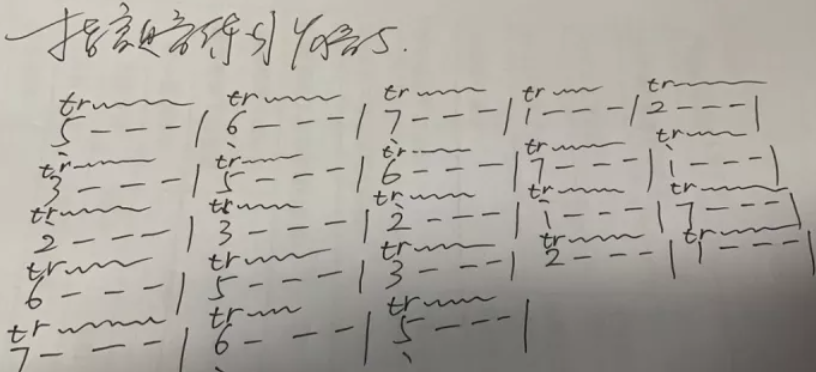 音练习 音5.
tr tr tr tr tr
5 - - - | 6 - - - | 7 - - - | 1 - - - | 2 - - - |
tr tr tr tr tr
3 - - - | 5 - - - | 6 - - - | 7 - - - | 1 - - - |
tr tr tr tr tr
2 - - - | 3 - - - | 2 - - - | 1 - - - | 7 - - - |
tr tr tr tr tr
6 - - - | 5 - - - | 3 - - - | 2 - - - | 1 - - - |
tr tr tr
7 - - - | 6 - - - | 5 - - - |